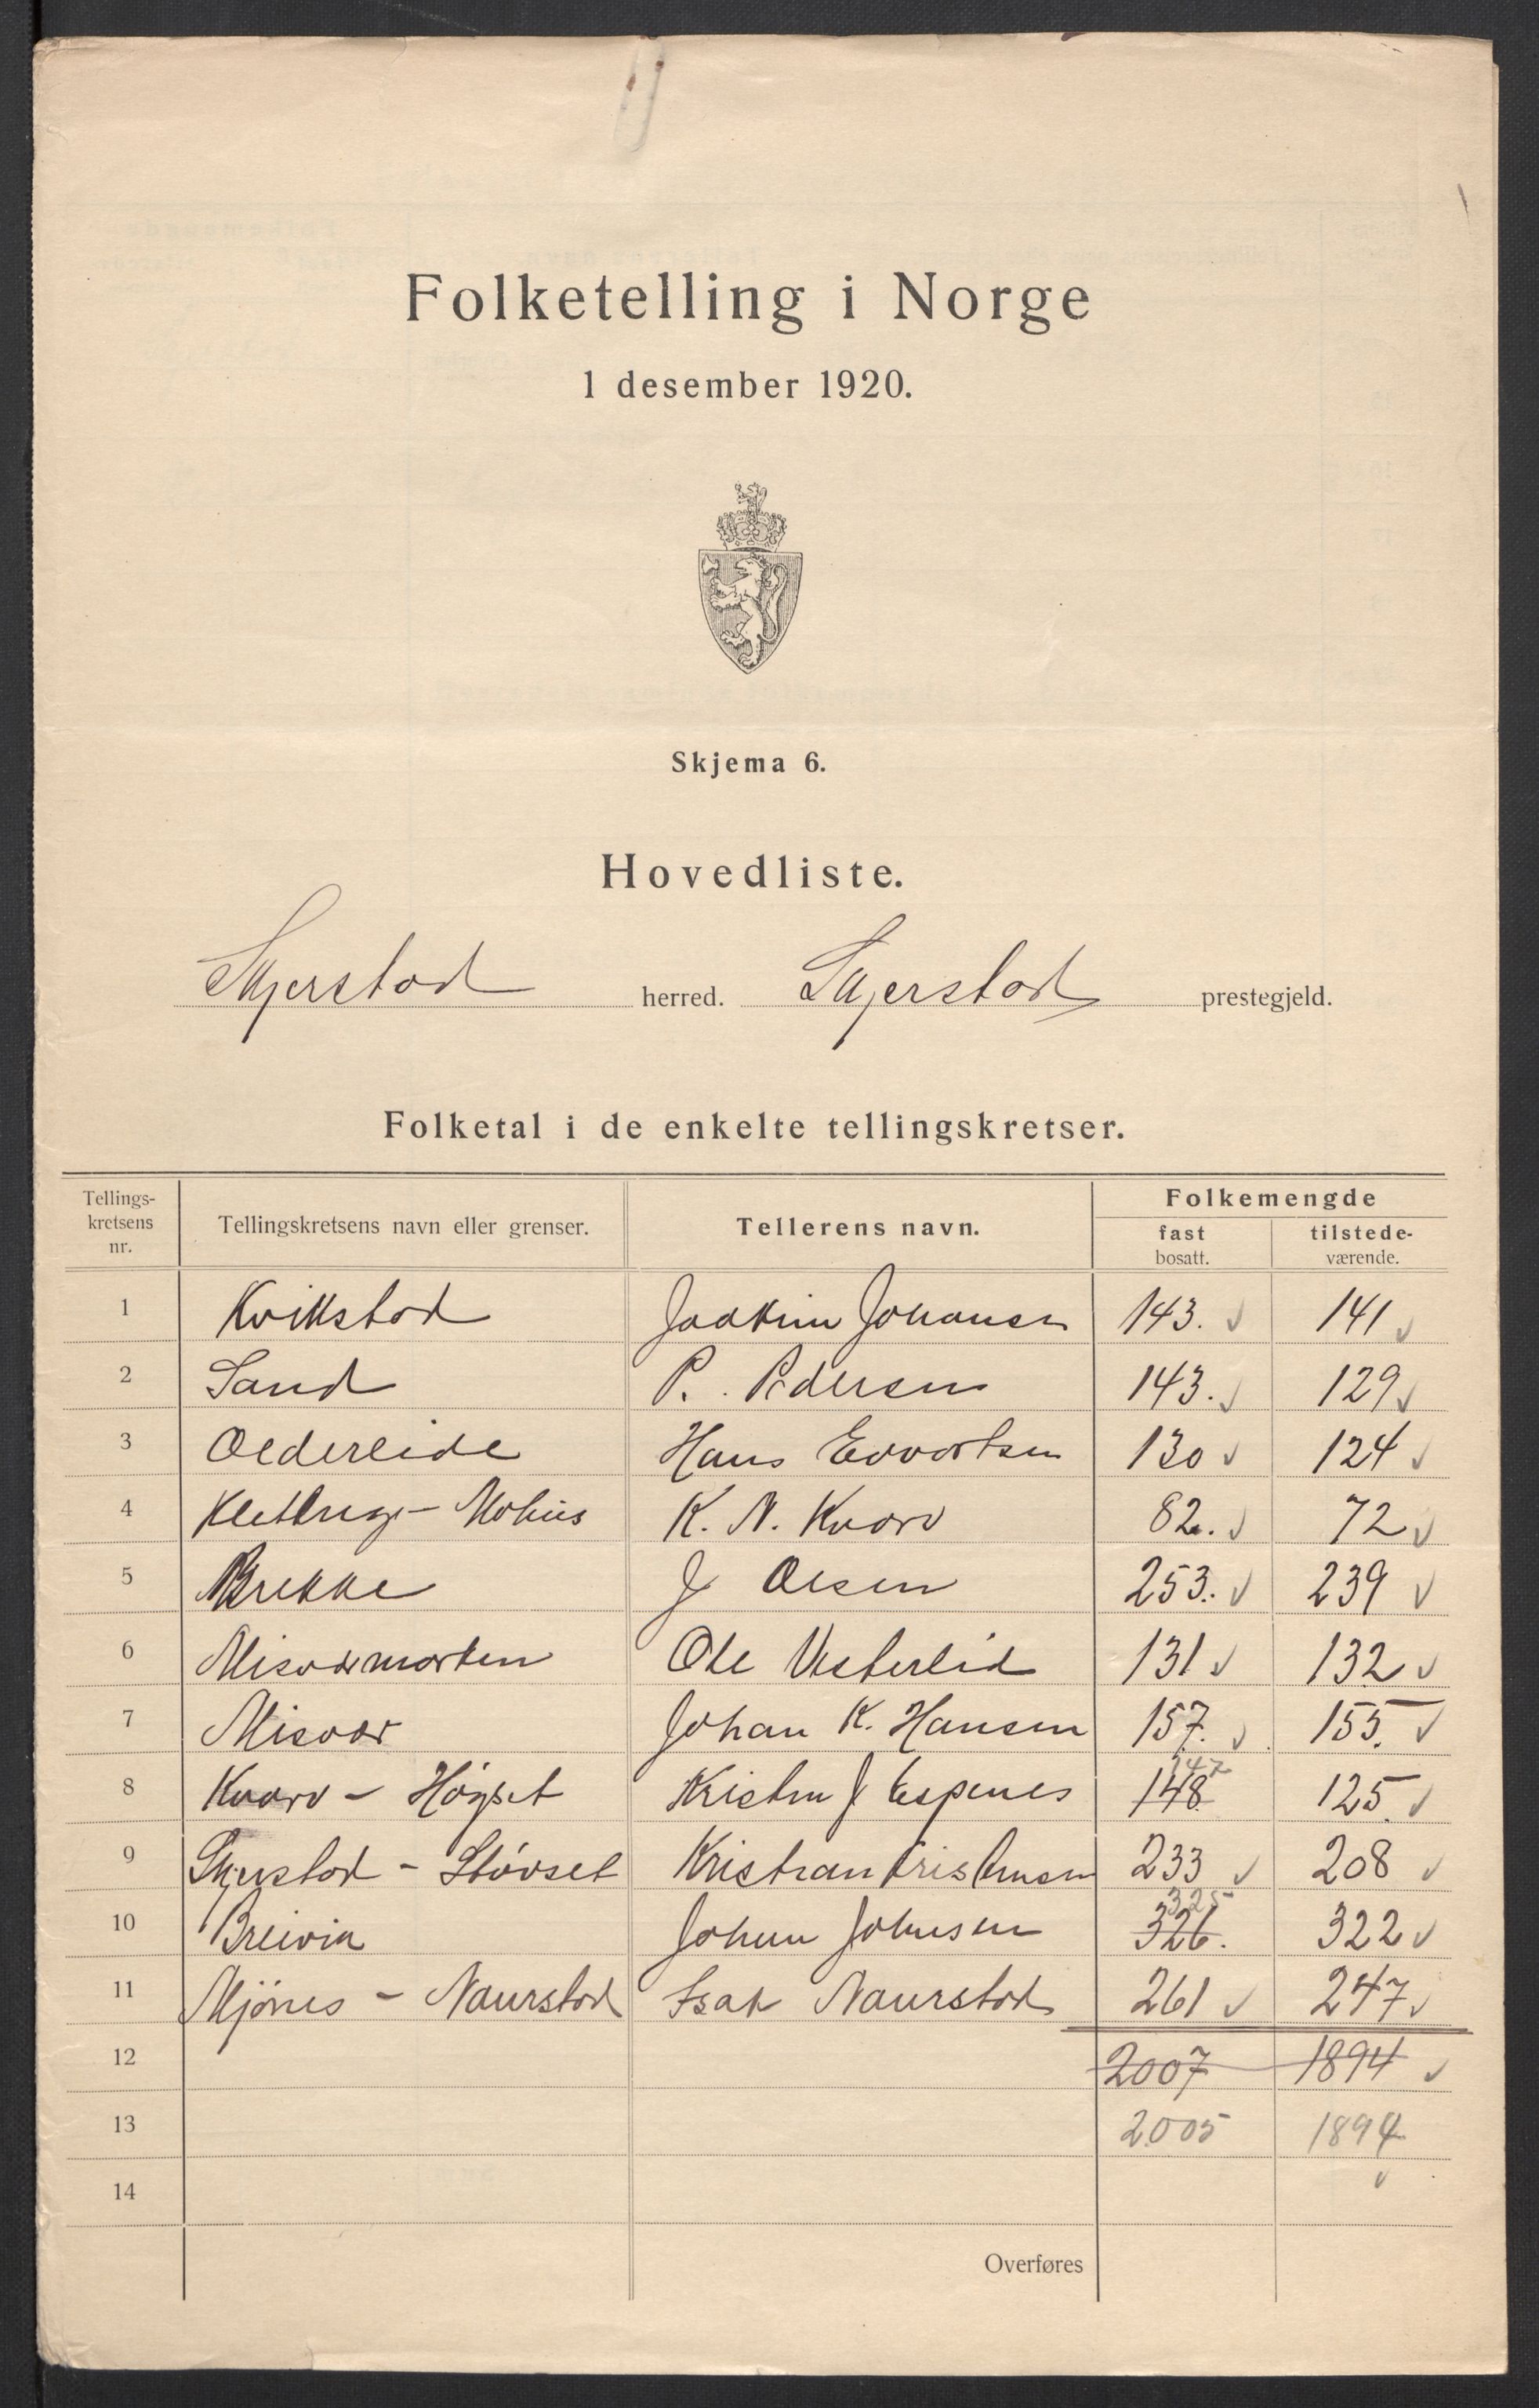 Folketelling i Norge
1 desember 1920.
Skjema 6.
Hovedliste.
Skjerstad herred. Skjerstad prestegjeld.
Folketal i de enkelte tellingskretser.
Tellings-kretsens nr. Tellingskretsens navn eller grenser. Tellerens navn. Folkemengde fast bosatt. tilstede-værende.
1 Kvikstad Joakim Johansen 143. 141
2 Sand P. Pedersen 143. 129
3 Oldereide Hans Edvartsen 130 124
4 Klettug - Mohus K. N. Kvarv 82. 72
5 Brekke J Olsen 253. 239
6 Misværmarken Ole Vesterlid 131 132
7 Misvær Johan K. Hansen 157. 155.
8 Kvarv - Høgset Kristen J Espenes 148 147 125
9 Skjerstad - Støvset Kristian Kristensen 233 208
10 Breivik Johan Johnsen 326. 325 322
11 Mjönes - Naurstad Isak Naurstad 261 247
12 2007 1894
13 2005 1894
14
Overføres